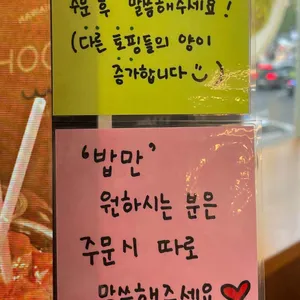 주문 후 말씀해주세요!
(다른 토핑들의 양이
증가합니다 )
'밥만'
원하시는 분은
주문시 따로
말씀해주세요